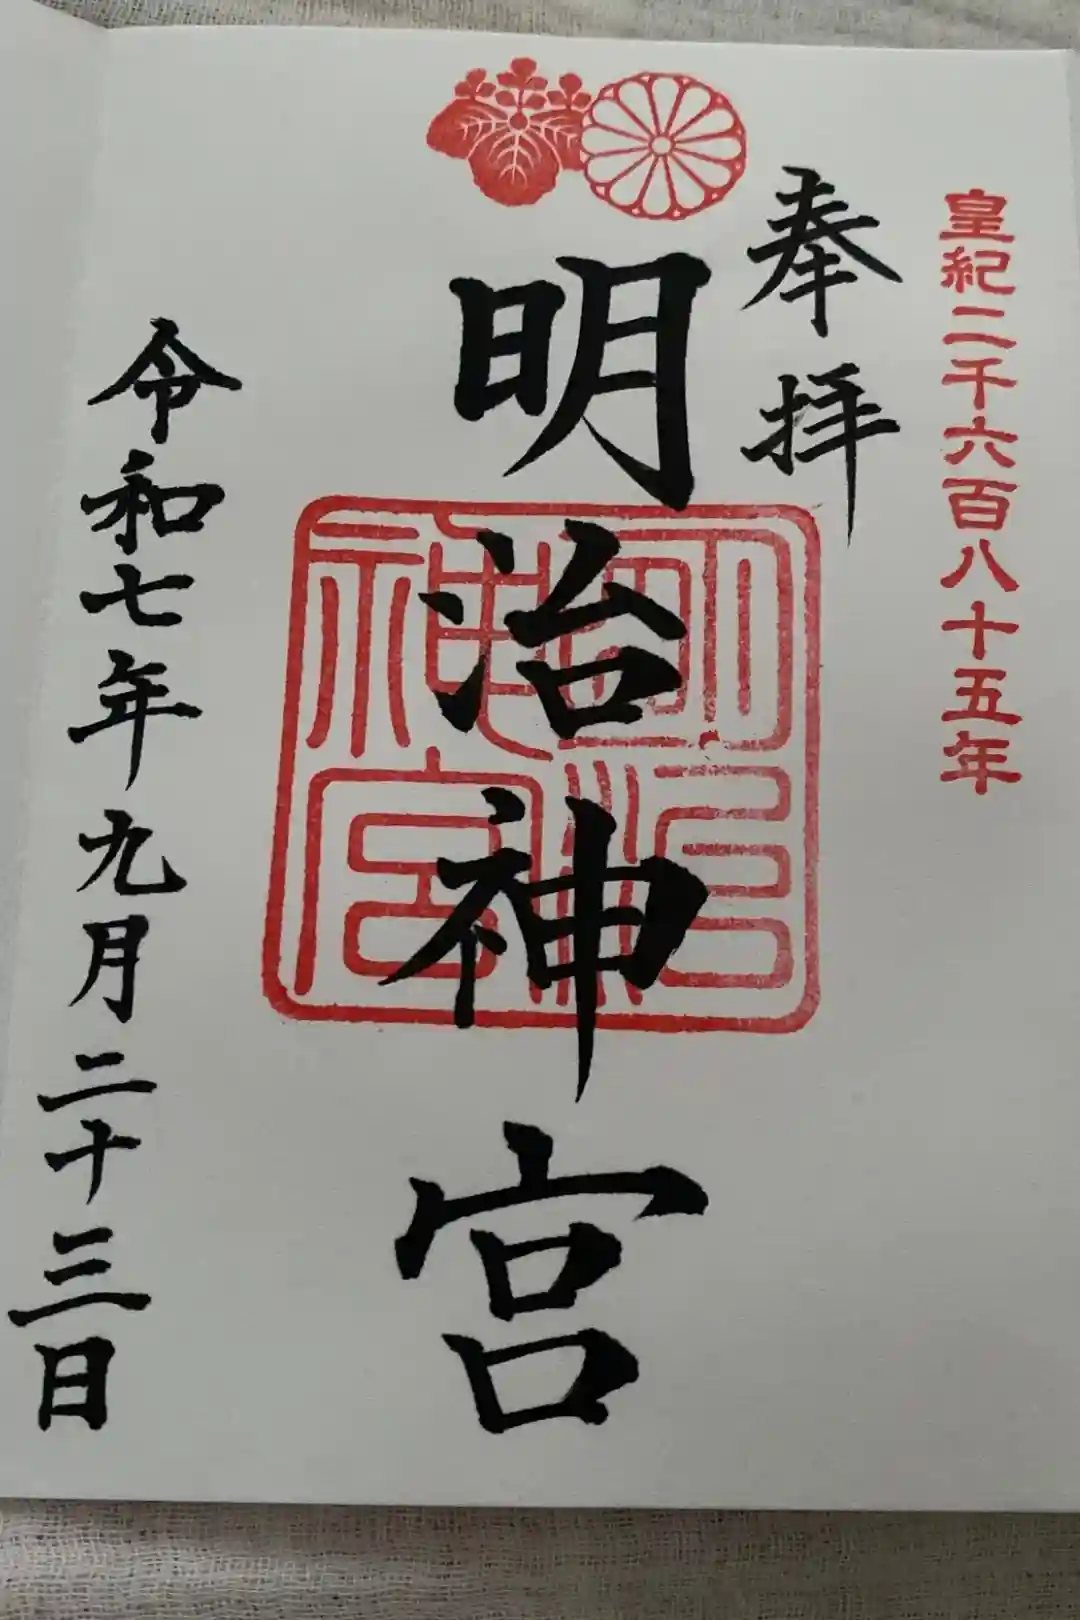 皇紀二千六百八十五年
奉拝
明治神宮
明治神宮
令和七年九月二十三日